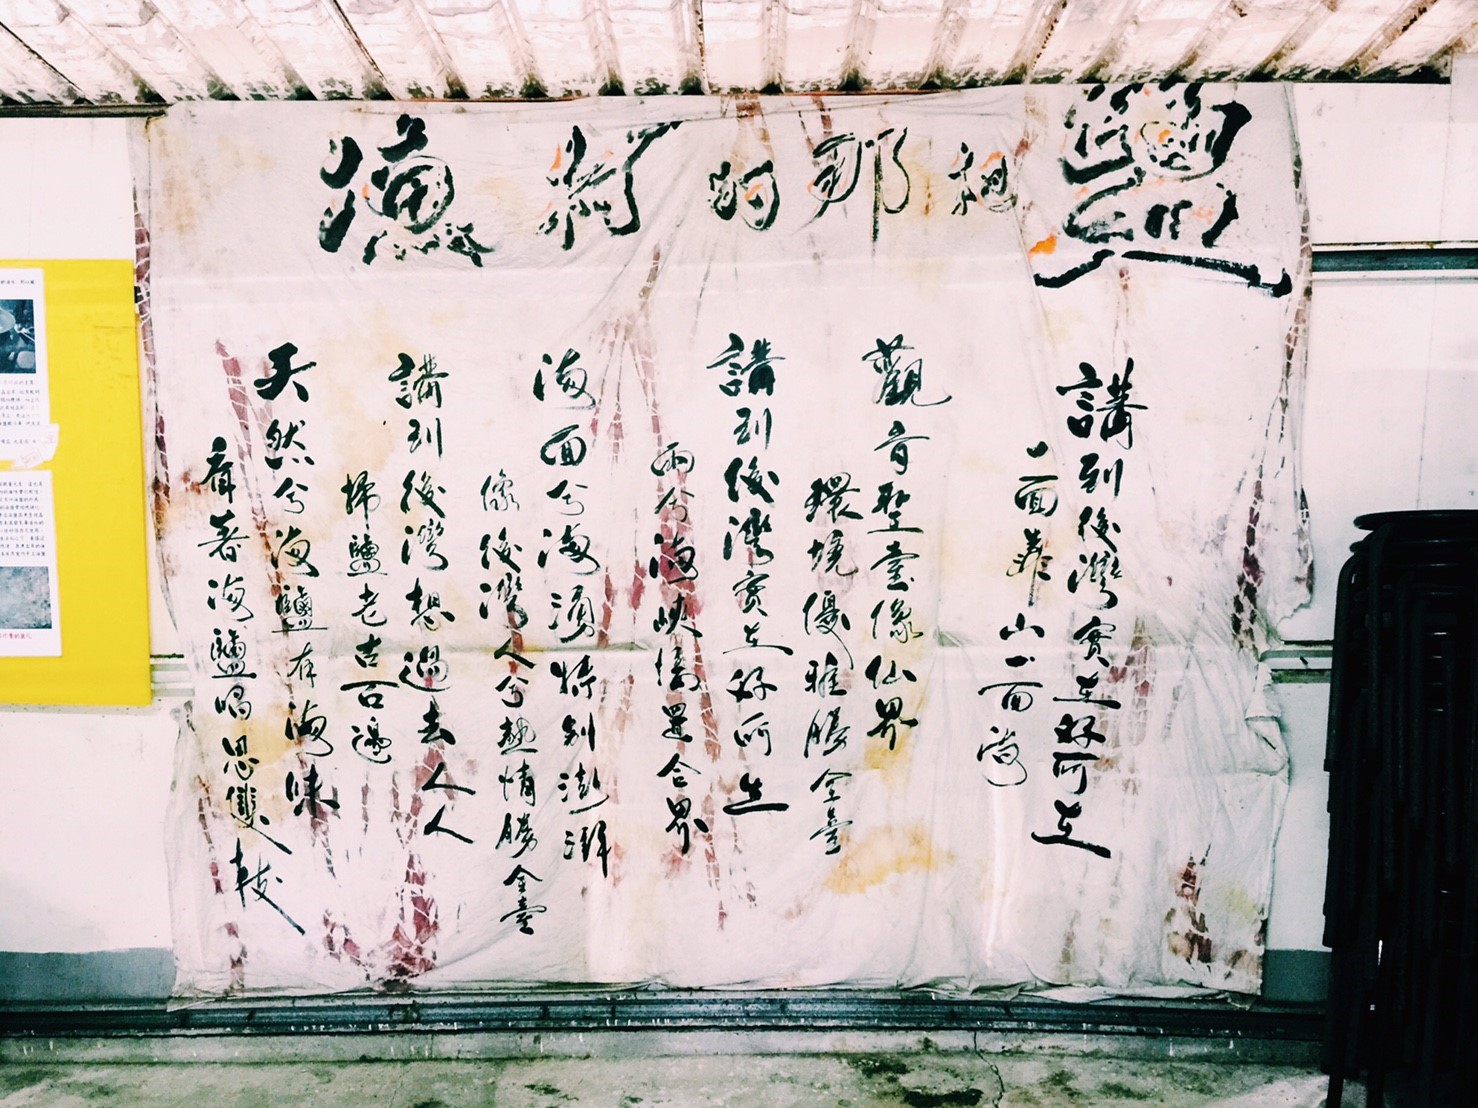 漁村的那鹽
講到後灣實在好所在
一面靠山一面
觀音聖臺像仙界
環境優雅勝全臺
講到後灣實在好所在
兩兮海峽置合界
海面兮海湧特別澎湃
像後灣人兮熱情勝全臺
講到後灣想過去人人
掃鹽老古石邊
天然兮海鹽有海味
看著海鹽唱思雙枝